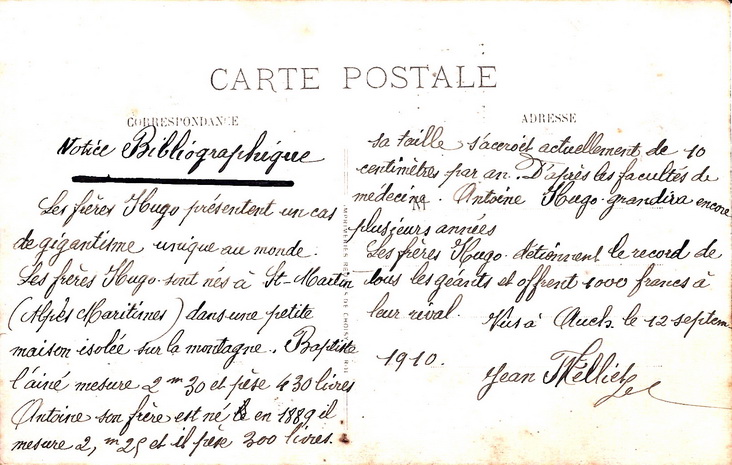 CARTE POSTALE
CORRESPONDANCE
Notice Bibliographique
Les frères Hugo présentent un cas
de gigantisme unique au monde.
Les frères Hugo sont nés à St-Martin
(Alpes Maritimes) dans une petite
maison isolée sur la montagne. Baptiste
l'ainé mesure 2 m 30 et pèse 430 livres
Antoine son frère est né le en 1889 il
mesure 2, m 25 et il pèse 300 livres.
ADRESSE
sa taille s'accroit actuellement de 10
centimètres par an. D'après les facultés de
médecine. Antoine Hugo grandira encore
plusieurs années
Les frères Hugo détionnent le record de
tous les géants et offrent 1000 francs à
leur rival. Vus à Auch. le 12 septem
1910.
Jean